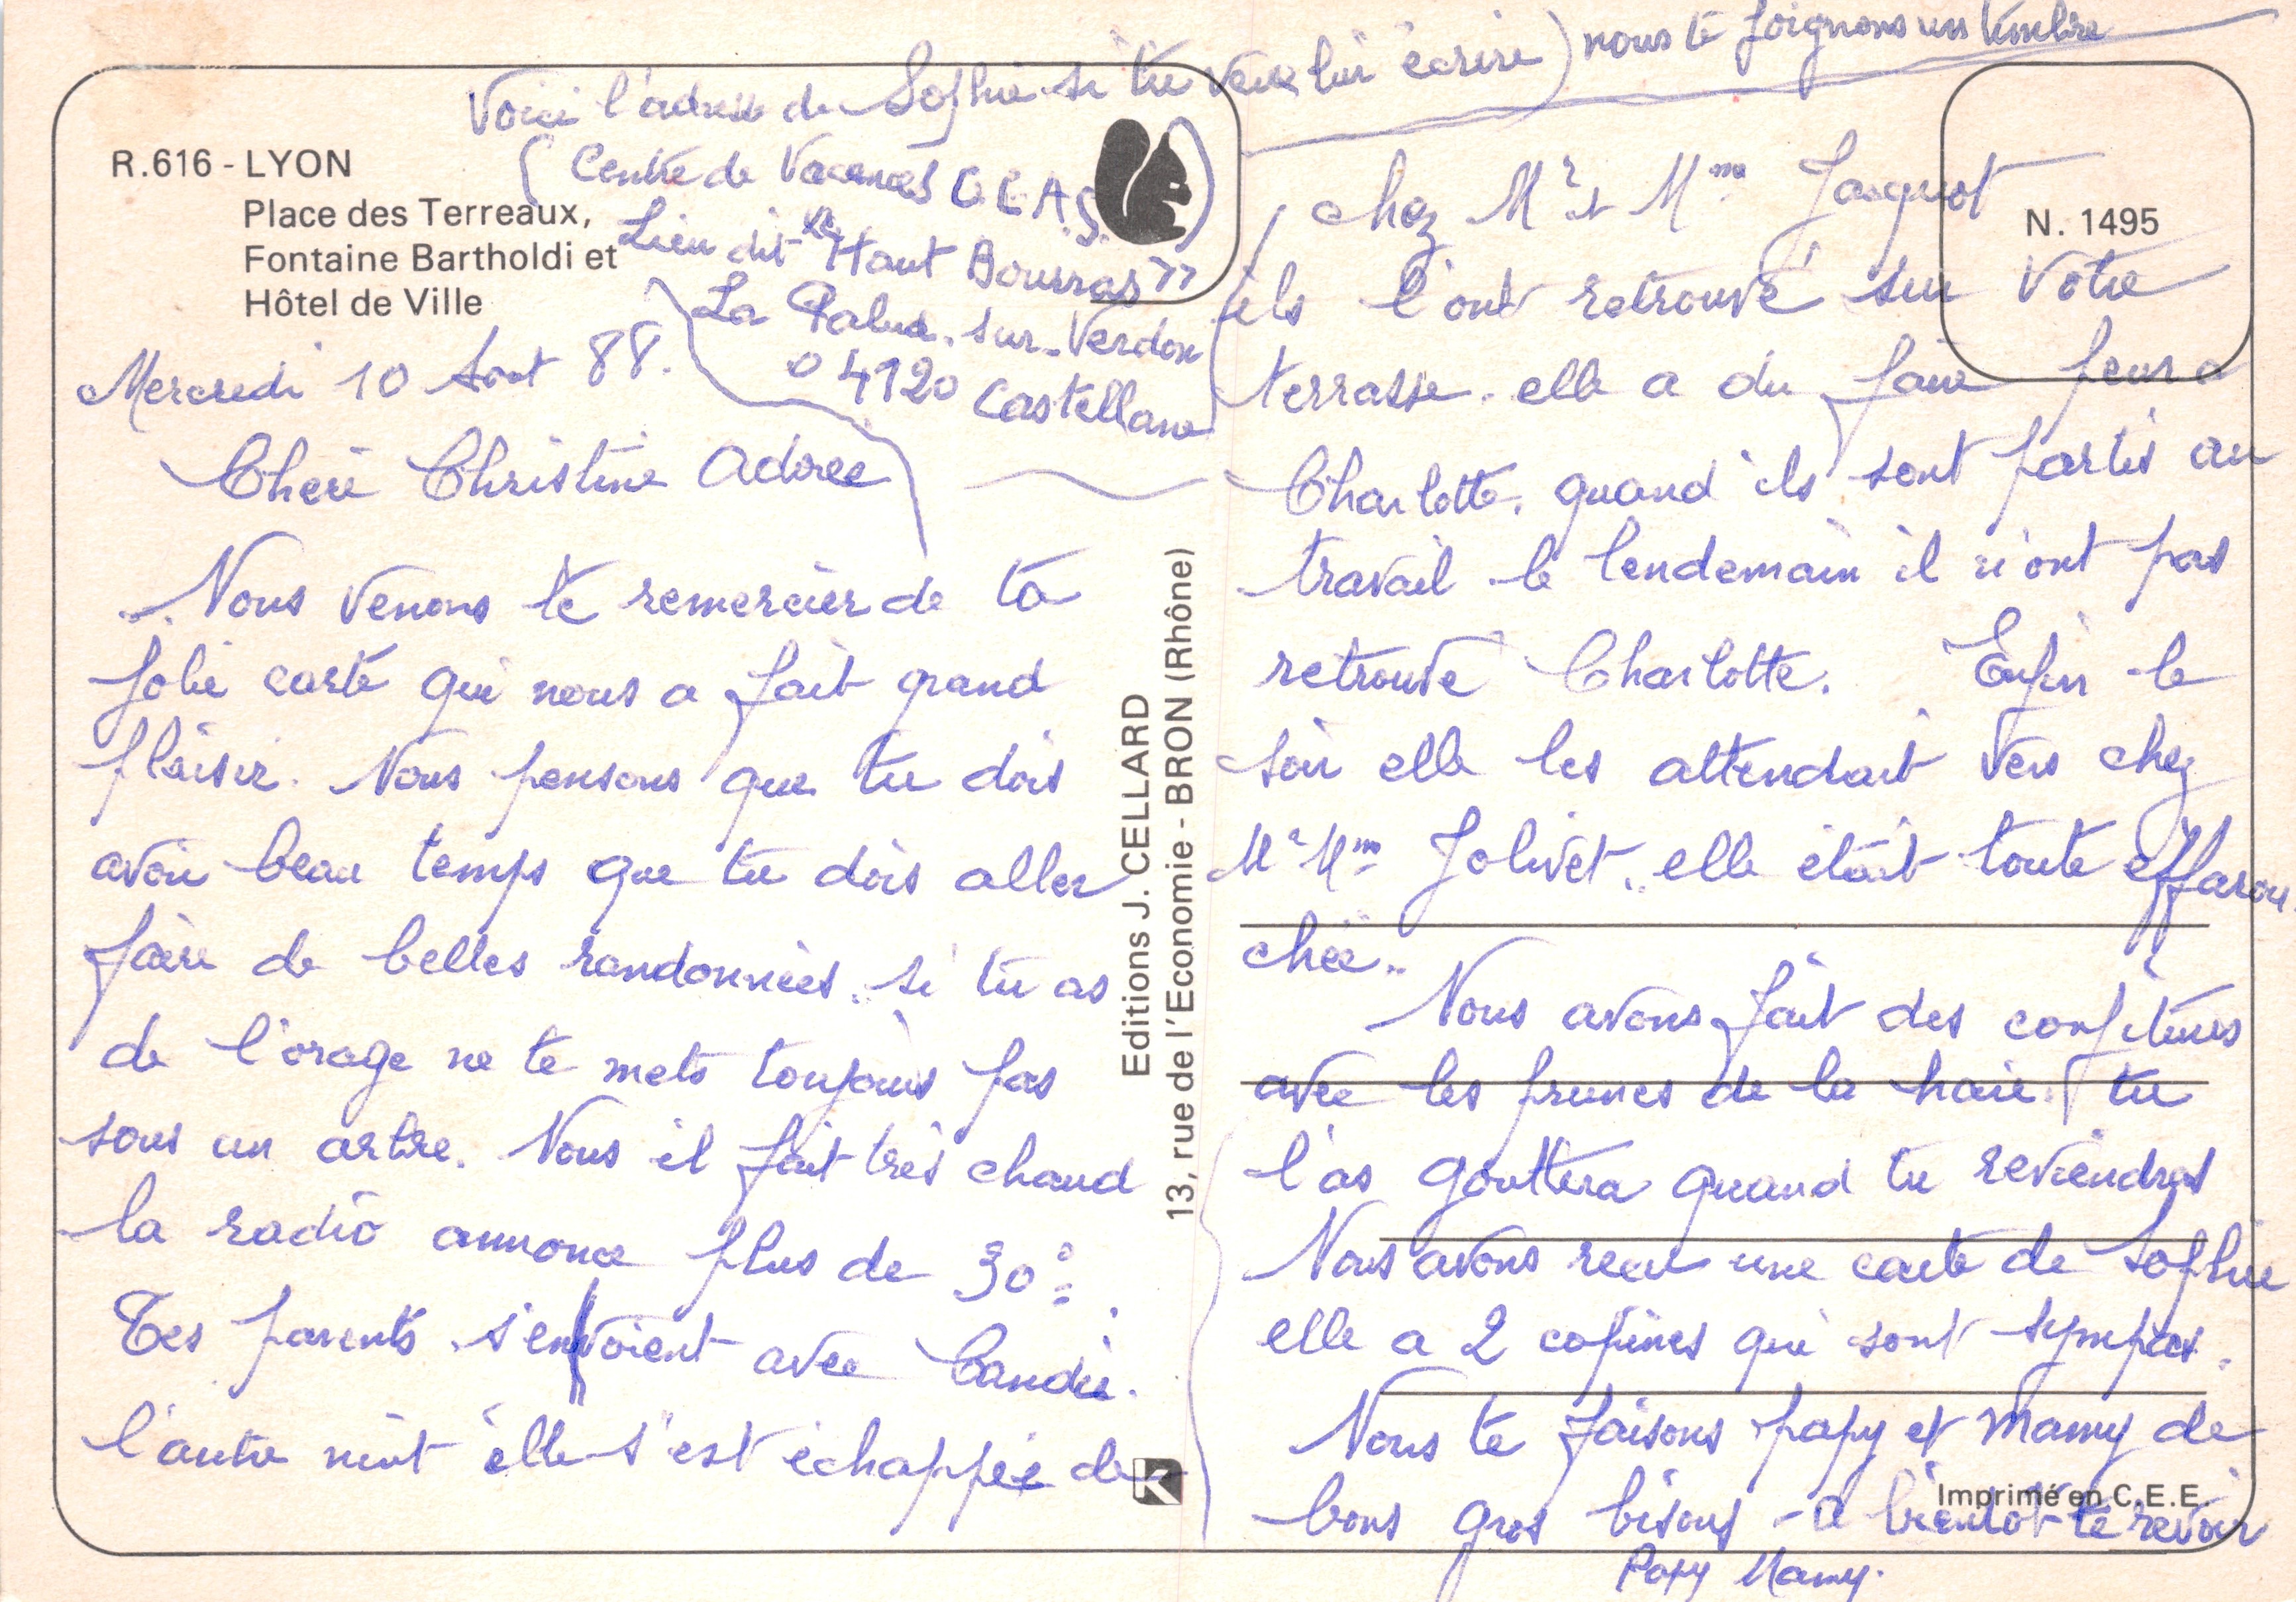 Voici l'adresse de Sophie si tu veux lui écrire) nous te joignons un timbre
(Centre de Vacances C.C.A.S.)
Lieu dit "le Haut Bourras"
La Palud-sur-Verdon
04120 Castellane
R.616 - LYON
Place des Terreaux,
Fontaine Bartholdi et
Hôtel de Ville
Mercredi 10 Aout 88.
Chère Christine adorée
Nous venons te remercier de ta
jolie carte qui nous a fait grand
plaisir. Nous pensons que tu dois
avoir beau temps que tu dois aller
faire de belles randonnées. si tu as
de l'orage ne te mets toujours pas
sous un arbre. Nous il fait très chaud
la radio annonce plus de 30°.
Tes parents s'envoient avec Candie.
l'autre nuit elle s'est échappée de
Editions J. CELLARD
13, rue de l'Economie - BRON (Rhône)
N. 1495
chez Mr et Mme Jasquot
ils l'ont retrouvé sur votre
terrasse. elle a du faire peur a
Charlotte. quand ils sont partis au
travail le lendemain il n'ont pas
retrouvé Charlotte. Enfin le
soir elle les attendait vers chez
Mr Mme Jolivet. elle était toute effarou
chée..
Nous avons fait des confitures
avec les prunes de la haie. tu
l'as gouttera quand tu reviendras
Nous avons recu une carte de Sophie
elle a 2 copines qui sont sympas.
Nous te faisons papy et mamy de
bons gros bisous - a bientot te revoir
Papy Mamy.
Imprimé en C.E.E.